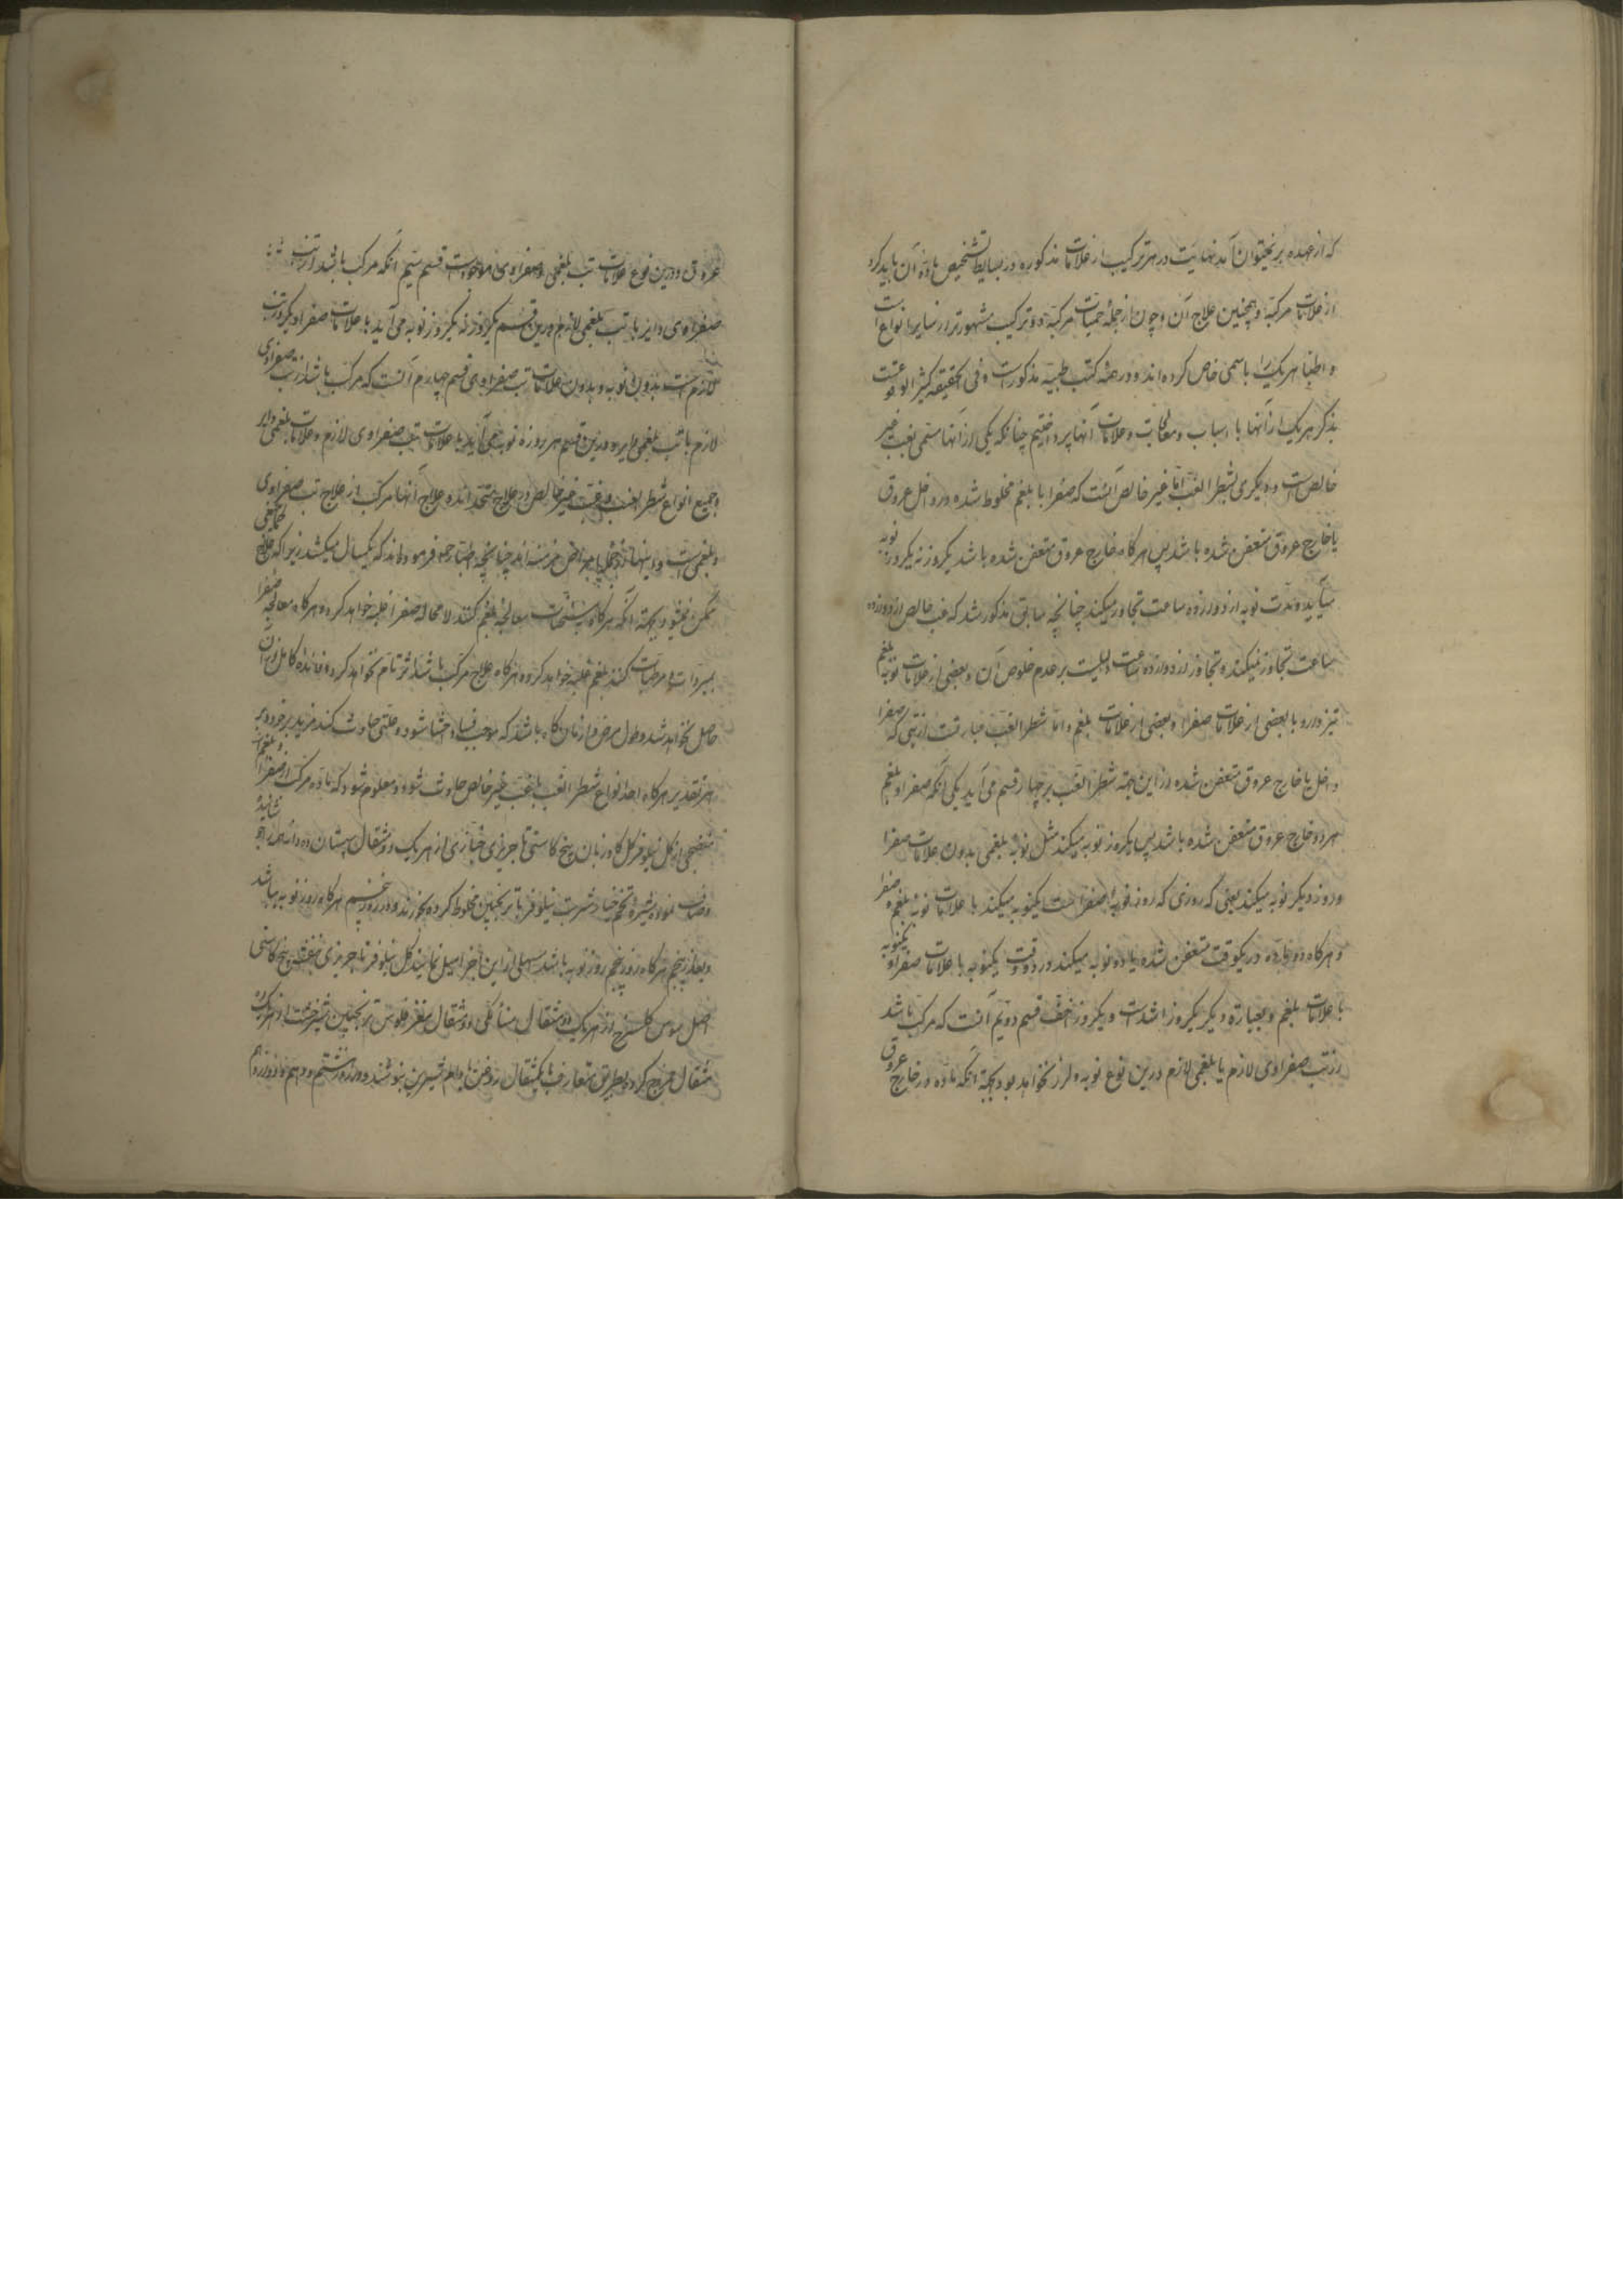 که از عهده بر نمیتوان آمد نهایت در هر ترکیب از علامات مذکوره در بسایط تشخیص ماده آن باید کرد
از علامات مرکبه و همچنین علاج آن و چون از جملهٔ حمیات مرکبه دو ترکیب مشهورتر از سایر انواع است
و اطبا هر یک را باسمی خاص کرده اند و در همه کتب طبیه مذکور است و فی الحقیقه کثیر الوقوعست
بذکر هر یک از آنها با اسباب و معالجات و علامات آنها پرداختیم چنانکه یکی از آنها مسمی بغب غیر
خالص است و دیگری بشطر الغب اما غیر خالص آنست که صفرا با بلغم مخلوط شده در داخل عروق
یا خارج عروق متعفن شده باشد پس هر گاه خارج عروق متعفن شده باشد یکروز نه یکروز نوبه
میآید و مدت نوبه از دوازده ساعت تجاوز میکند چنانچه سابق مذکور شد که غب خالص از دوازده
ساعت تجاوز نمیکند و تجاوز از دوازده ساعت دلیلیست بر عدم خلوص آن و بعضی از علامات نوبه بلغم
نیز دارد با بعضی از علامات صفرا و بعضی از علامات بلغم و اما شطر الغب عبارتست از تبی که صفرا
داخل یا خارج عروق متعفن شده از این جهته شطر الغب بر چهار قسم می آید یکی آنکه صفرا و بلغم
هر دو خارج عروق متعفن شده باشد پس یکروز نوبه میکند مثل نوبهٔ بلغمی بدون علامات صفرا
و روز دیگر نوبه میکند یعنی که روزی که روز نوبه صفرا است یکنوبه میکند با علامات نوبه بلغم و صفرا
و هر گاه دو ماده در یکوقت متعفن شده یا دو نوبه میکند در دو وقت یکنوبه با علامات صفرا و یکنوبه
با علامات بلغم و بعبارة دیگر یکروز اشد است و یکروز اخف قسم دویم آنست که مرکب باشد
از تب صفراوی لازم یا بلغمی لازم درین نوع نوبه و لرز نخواهد بود بجهة آنکه ماده در خارج عروق
عروق و درین نوع علامات تب بلغمی و صفراوی موجود است قسم سیم آنکه مرکب باشد از تب
صفراوی دایر با تب بلغمی لازم درین قسم یکروز نه یکروز نوبه می آید با علامات صفرا و یکروز تب
لازم است بدون نوبه و بدون علامات تب صفراوی قسم چهارم آنست که مرکب باشد از تب صفراوی
لازم با تب بلغمی دایر و درین قسم هر روزه نوبه می آید با علامات تب صفراوی لازم و علامات بلغمی دایر
و جمیع انواع شطر الغب و غب غیر خالص در علاج متحد اند و علاج آنها مرکب از علاج تب صفراوی
و بلغمی است و اینها از جمله امراض مزمنه اند چنانچه اطبا حمو فرموده اند که یکسال میکشد زیرا که علاج
ممکن نمیشود بجهته آنکه هر گاه بمسخنات معالجه بلغم کنند لا محاله صفرا غلبه خواهد کرد و هر گاه معالجه صفرا
بمبردات و مرطبات کنند بلغم غلبه خواهد کرد و هر گاه علاج مرکب باشد اثر تام نخواهد کرد و فایده کامل از آن
حاصل نخواهد شد و طول مرض و ازمان گاه باشد که موجب فساد احشا شود و علتی حادث کند مزید بر خود و بر
هر تقدیر هر گاه احد انواع شطر الغب یا غب غیر خالص حادث شود و معلوم شود که ماده مرکب از صفرا و بلغم است
منضجی از گل نیلوفر گل گاوزبان بیخ کاسنی تاجریزی خبازی از هر یک دو مثقال سپستان ده دانه
و صاف نموده شیره تخم خیار شربت نیلوفر با ترنجبین مخلوط کرده بخورند و در روز پنجم هر گاه روز نوبه نباشد
و بعد از پنجم هر گاه روز پنجم روز نوبه باشد مسهلی از این اجزا میل نمایند گل نیلوفر تاجریزی بنفشه بیخ کاسنی
اصل سوس گلسرخ از هر یک دو مثقال سنا مکی دو مثقال مغز فلوس ترنجبین شیرخشت از هر یک ده
مثقال مزج کرده بطریق متعارف با یکمثقال روغن بادام شیرین بنوشند و در روز هشتم و دهم و دوازدهم